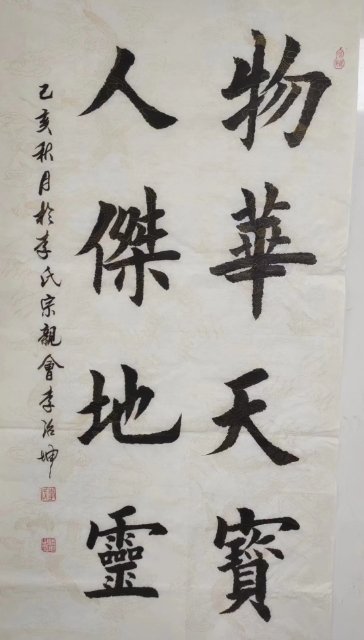 物華天寳
人傑地靈
己亥秋月於李氏宗親會李治坤